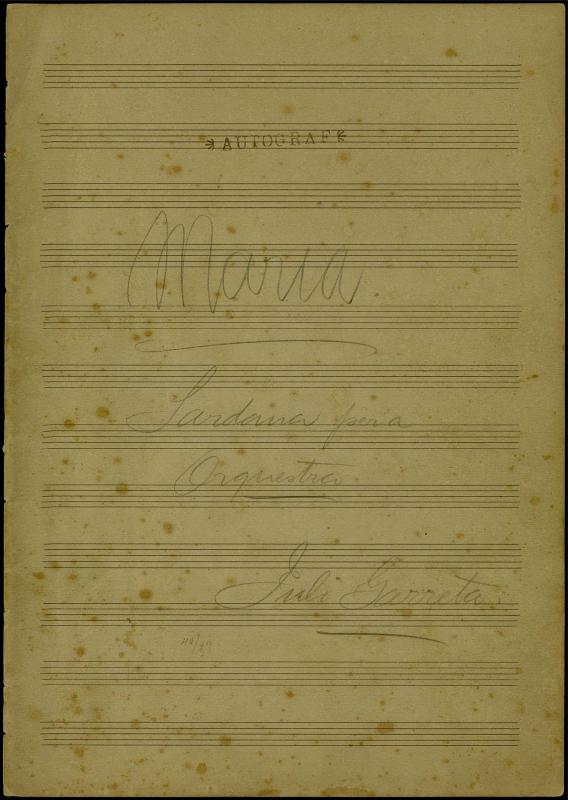 *AUTOGRAF*
Maria
Sardana pera
Orquestra
Juli Garreta